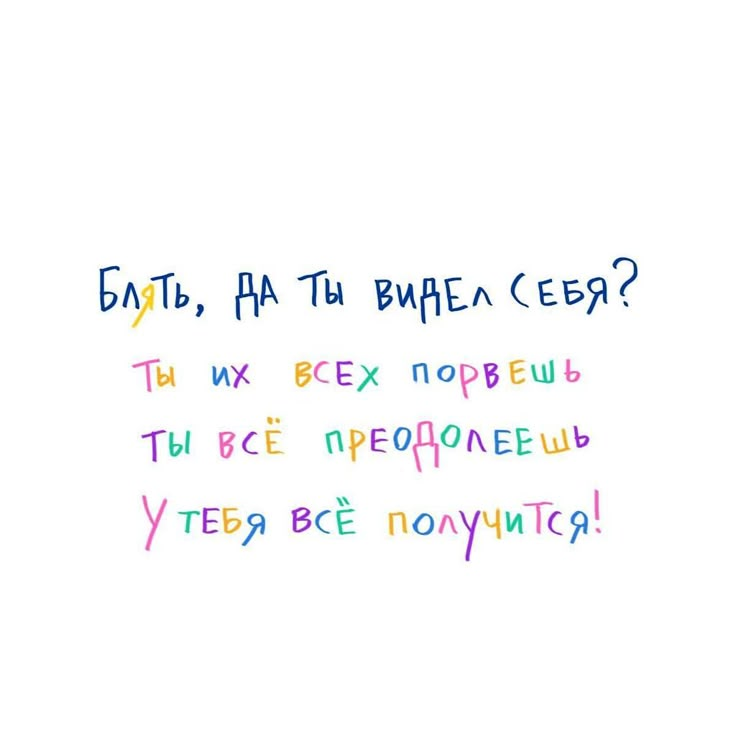 Блять, да ты видел себя?
Ты их всех порвешь
Ты всё преодолеешь
У тебя всё получится!